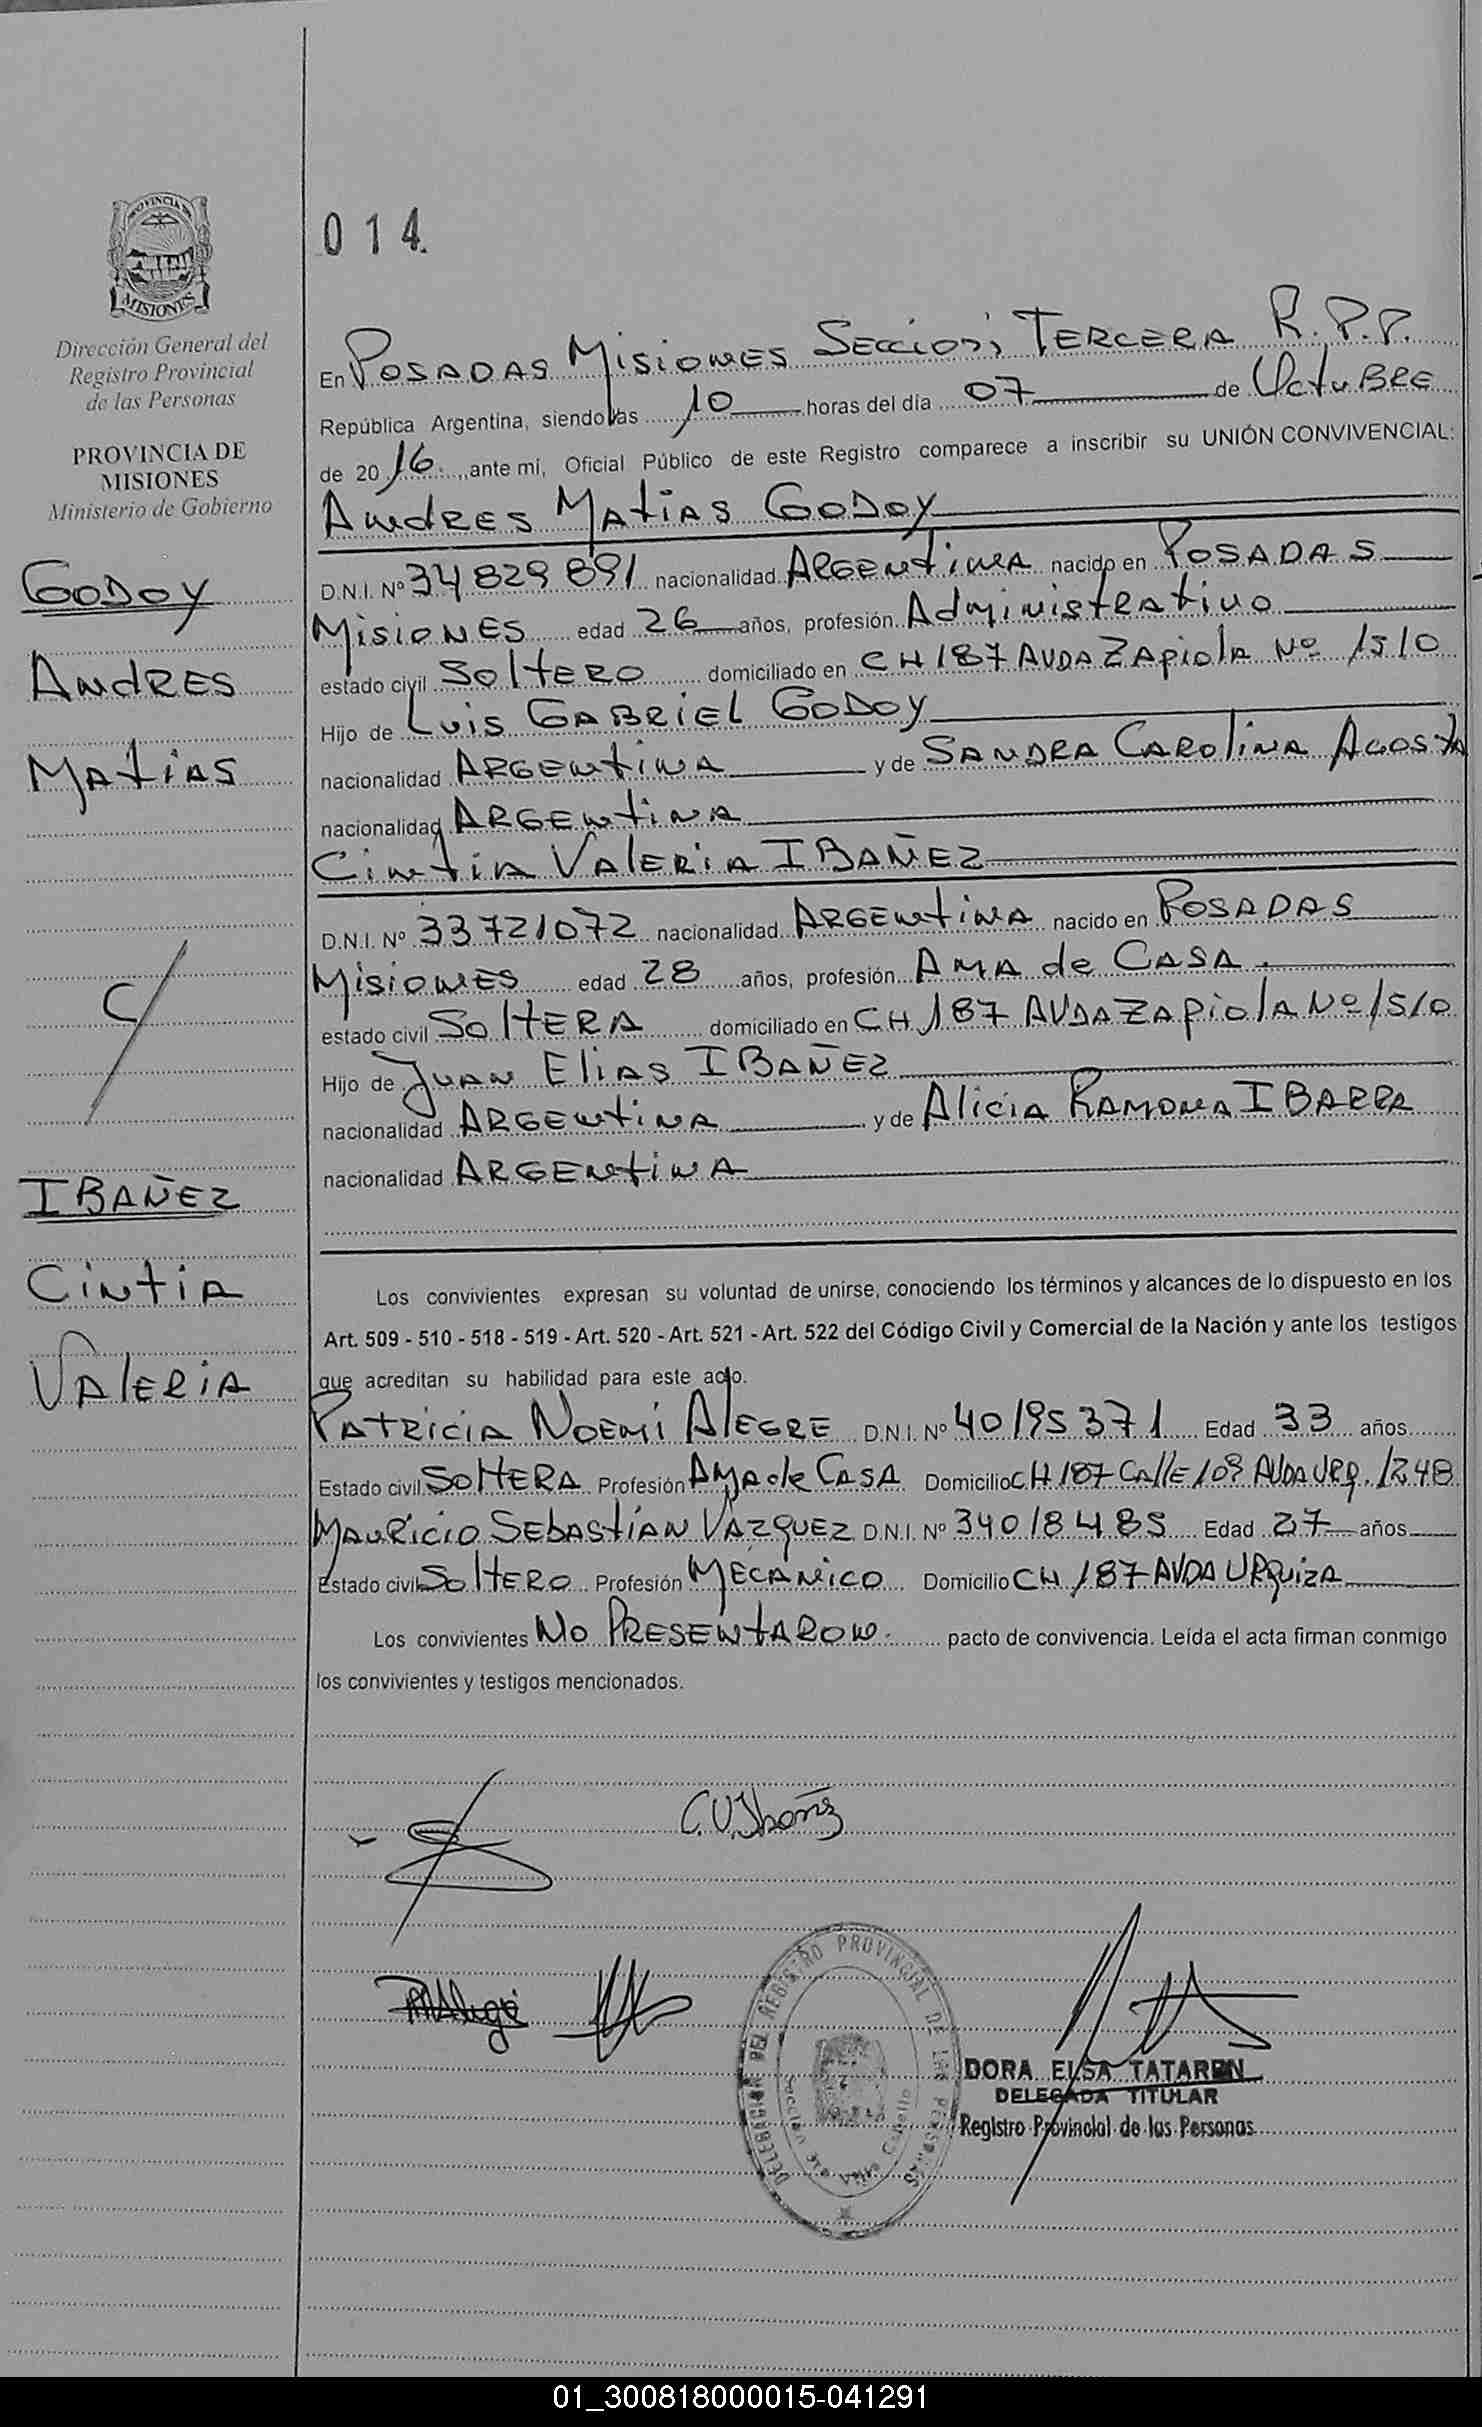 PROVINCIA DE
MISIONES
Dirección General del
Registro Provincial
de las Personas
PROVINCIA DE
MISIONES
Ministerio de Gobierno
GODOY
ANDRES
MATIAS
C/
IBAÑEZ
CINTIA
VALERIA
014.
En POSADAS MISIONES SECCIÓN TERCERA R.P.P.
República Argentina, siendo las 10 horas del día 07 de OCTUBRE
de 2016. ante mí, Oficial Público de este Registro comparece a inscribir su UNIÓN CONVIVENCIAL:
ANDRES MATIAS GODOY
D.N.I. Nº 34829891 nacionalidad ARGENTINA nacido en POSADAS
MISIONES edad 26 años, profesión ADMINISTRATIVO
estado civil SOLTERO domiciliado en CH 187 AVDA ZAPIOLA Nº 1510
Hijo de LUIS GABRIEL GODOY
nacionalidad ARGENTINA y de SANDRA CAROLINA ACOSTA
nacionalidad ARGENTINA
CINTIA VALERIA IBAÑEZ
D.N.I. Nº 33721072 nacionalidad ARGENTINA nacido en POSADAS
MISIONES edad 28 años, profesión AMA de CASA.
estado civil SOLTERA domiciliado en CH 187 AVDA ZAPIOLA Nº 1510
Hijo de JUAN ELIAS IBAÑEZ
nacionalidad ARGENTINA y de ALICIA RAMONA IBARRA
nacionalidad ARGENTINA
Los convivientes expresan su voluntad de unirse, conociendo los términos y alcances de lo dispuesto en los
Art. 509 - 510 - 518 - 519 - Art. 520 - Art. 521 - Art. 522 del Código Civil y Comercial de la Nación y ante los testigos
que acreditan su habilidad para este acto.
PATRICIA NOEMÍ ALEGRE D.N.I. Nº 40195371 Edad 33 años
Estado civil SOLTERA Profesión AMA de CASA Domicilio CH 187 CALLE 109 AVDA URQ. 1248
MAURICIO SEBASTIÁN VÁZQUEZ D.N.I. Nº 34018485 Edad 27 años
Estado civil SOLTERO Profesión MECÁNICO Domicilio CH 187 AVDA URQUIZA
Los convivientes NO PRESENTARON. pacto de convivencia. Leída el acta firman conmigo
los convivientes y testigos mencionados.
C.V.Ibañez
DELEGACION DEL REGISTRO PROVINCIAL DE LAS PERSONAS
DORA ELSA TATAREN
DELEGADA TITULAR
Registro Provincial de las Personas
01_300818000015-041291